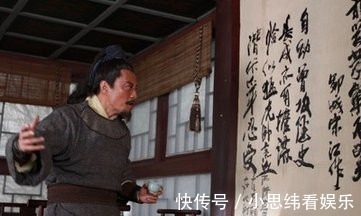 鄆城宋江作
自幼曾攻經史
長成亦有權謀
恰似猛虎卧荒丘
潛伏爪牙忍受
快传号 / 小思纬看娱乐